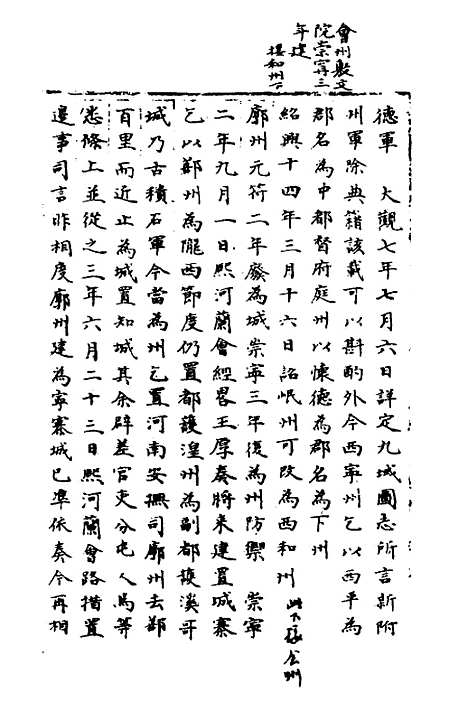 會州敷文
院崇寧三
年建
據和州下
德軍　大觀七年七月六日詳定九域圖志所言新附
州軍除典籍該載可以斟酌外今西寧州乞以西平為
郡名為中都督府庭州以懷德為郡名為下州
紹興十四年三月十六日詔岷州可改為西和州　此下接會州
廓州元符二年廢為城崇寧三年復為州防禦　崇寧
二年九月一日熙河蘭會經畧王厚奏將來建置城寨
乞以鄯州為隴西節度仍置都護湟州為副都護溪哥
城乃古積石軍今當為州乞置河南安撫司廓州去鄯
百里而近止為城置知城其余辟差官吏分屯人馬等
悉條上並從之三年六月二十三日熙河蘭會路措置
邊事司言昨相度廓州建為寧寨城已準依奏今再相